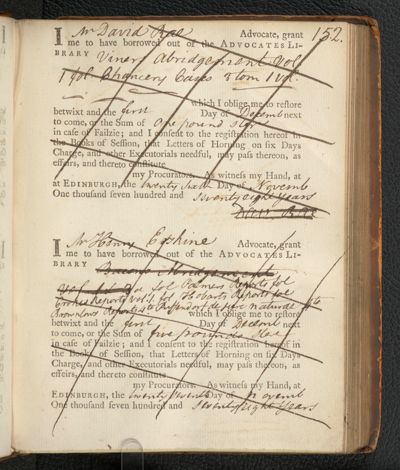 152.
I Mr David Rae Advocate, grant
me to have borrowed out of the ADVOCATES LI-
BRARY Viners Abridgement Vol
1 vol. Chancery Cases 8
which I oblige me to restore
betwixt and the first Day of Decemb next
to come, or the Sum of One pound
in case of Failzie; and I consent to the registration hereof in
the Books of Session, that Letters of Horning on six Days
Charge, and other Executorials needful, may pass thereon, as
effeirs, and thereto constitute
my Procurators. As witness my Hand, at
at EDINBURGH, the twenty sixth Day of Novemb
One thousand seven hundred and Seventy eight years
I Mr Henry Erskine Advocate, grant
me to have borrowed out of the ADVOCATES LI-
BRARY Bacons Abridgement
fol Palmers Reports fol
Reports vol. 1. fol. Hobarts Reports fol
Brownlows Reports
which I oblige me to restore
betwixt and the first Day of Decemb next
to come, or the Sum of five pounds
in case of Failzie; and I consent to the registration hereof in
the Books of Session, that Letters of Horning on six Days
Charge, and other Executorials needful, may pass thereon, as
effeirs, and thereto constitute
my Procurators. As witness my Hand, at
EDINBURGH, the twenty seventh Day of Novemb
One thousand seven hundred and Seventy eight years